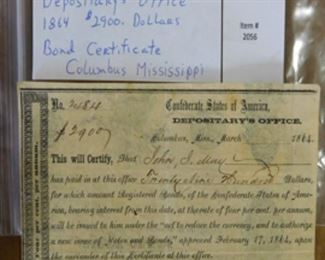 Depositary's Office
1864 $2900. Dollars
Bond Certificate
Columbus Mississippi
Item #
2056
No. 2484
Confederate States of America,
DEPOSITARY'S OFFICE,
$2900
Columbus, Miss., March 1864.
This will Certify, That John S. May
has paid in at this office Twenty nine Hundred Dollars,
for which amount Registered Bonds, of the Confederate States of Ame-
rica, bearing interest from this date, at the rate of four per cent. per annum,
will be issued to him under the "act to reduce the currency, and to authorize
a new issue of Notes and Bonds," approved February 17, 1864, upon
the surrender of this Certificate at this office.
per cent. per annum.